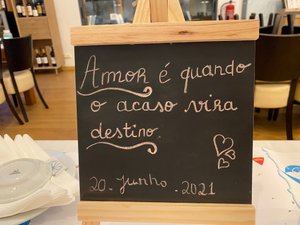 Amor é quando
o acaso vira
destino.
20. Junho. 2021